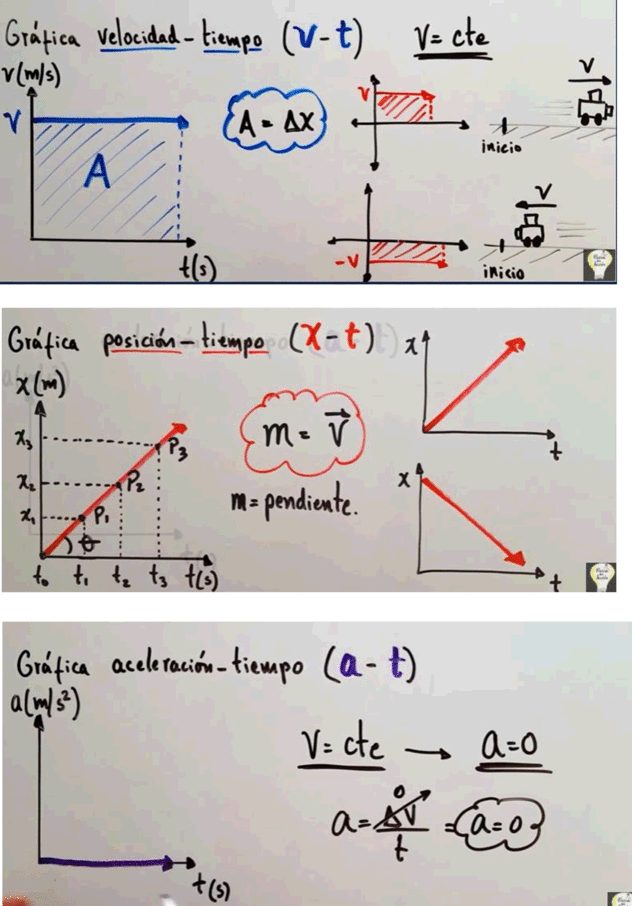 Gráfica velocidad-tiempo (v-t) V=cte
v(m/s)
V
A
t(s)
A = ΔX
V
V
inicio
-V
V
inicio
Gráfica posición-tiempo (X-t)
X(m)
X₃
X₂
X₁
P₁
P₂
P₃
θ
t₀ t₁ t₂ t₃ t(s)
m = V⃗
m=pendiente.
X
t
X
t
Gráfica aceleración-tiempo (a-t)
a(m/s²)
t(s)
V=cte → a=0
0
a=ΔV/t = a=0